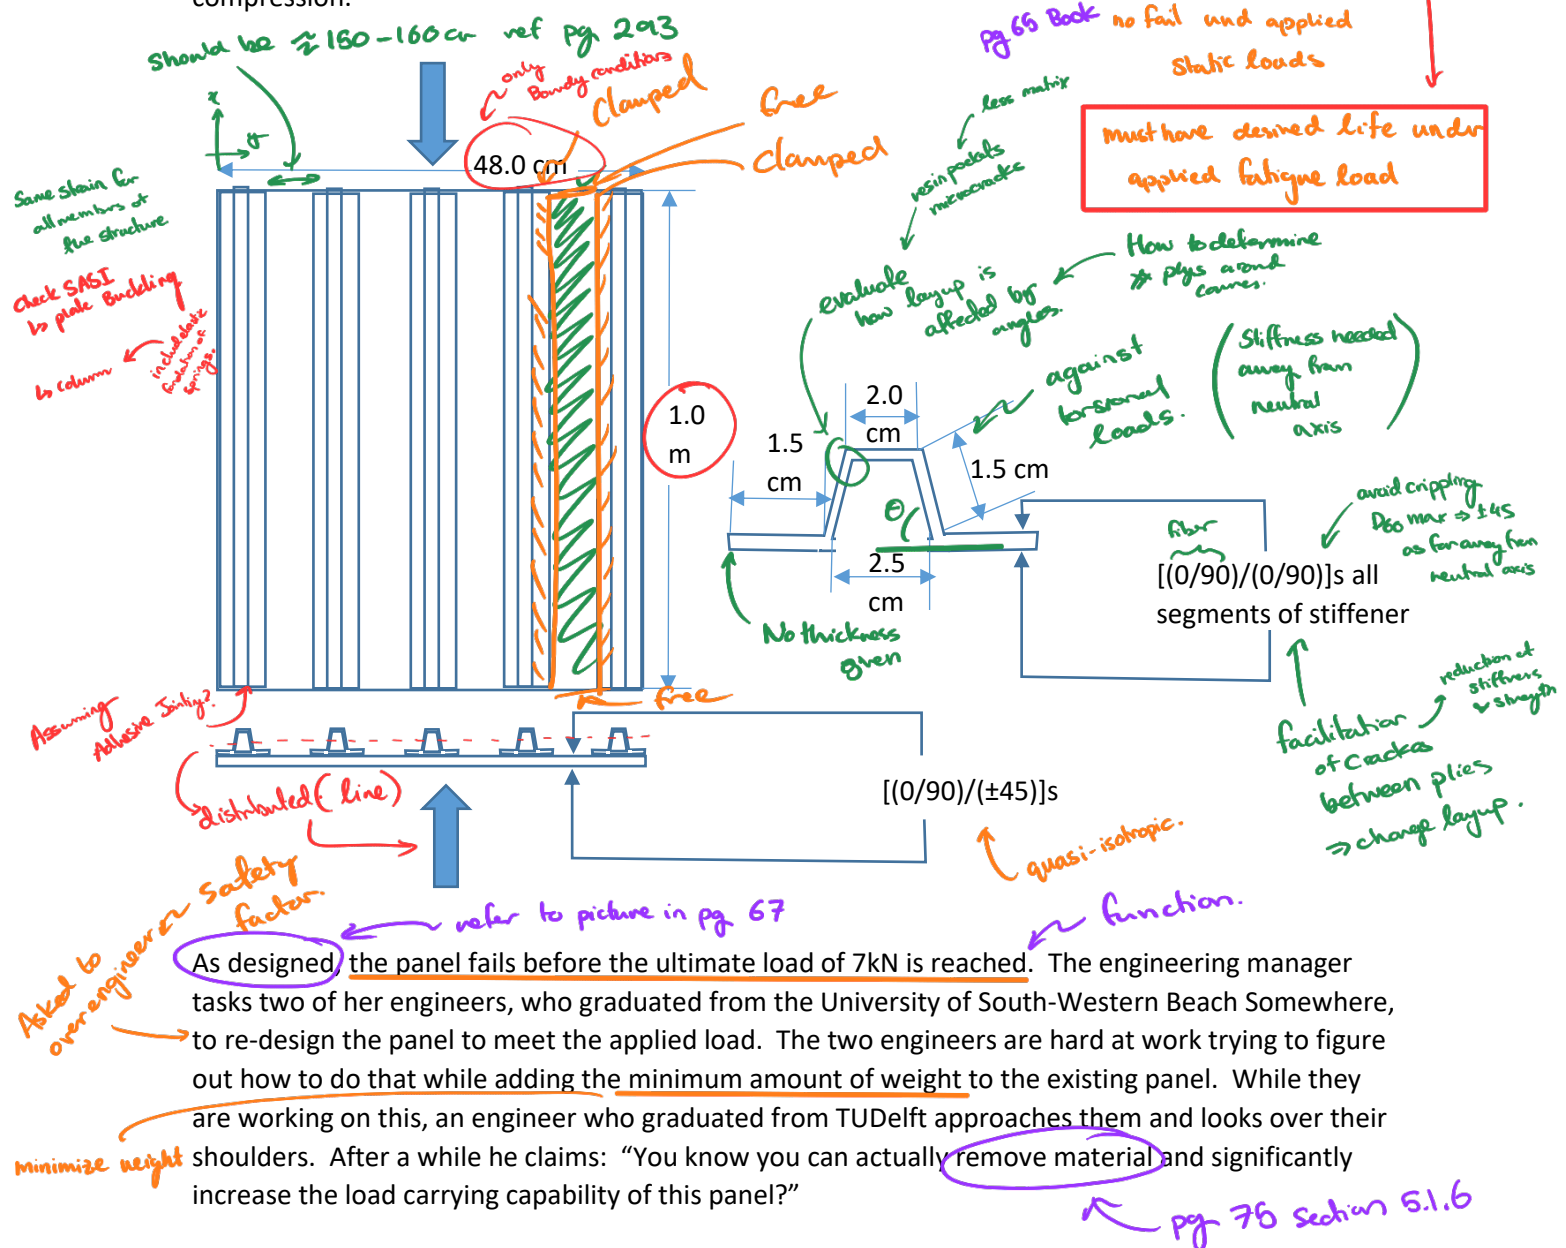 compression.
Should be ≈ 150-160cm ref pg. 293
pg 65 Book
no fail und applied
static loads
must have desired life under
applied fatigue load
only
Boundy conditions
Clamped
free
clamped
x
y
48.0 cm
Same strain for
all members of
the structure
check SASI
↳ plate Buckling
↳ column
include elastic
fondation of
springs.
1.0
m
less matrix
resin pockets
microcracks
evaluate
how layup is
affected by
angles.
How to determine
# plys around
corners.
against
torsional
loads.
(Stiffness needed
away from
neutral
axis)
2.0
cm
1.5
cm
1.5 cm
θ
2.5
cm
No thickness
given
fiber
[(0/90)/(0/90)]s all
segments of stiffener
avoid crippling
D66 max ⇒ ±45
as far away from
neutral axis
reduction of
stiffness
& strength
facilitation
of cracks
between plies
⇒ change layup.
Assuming
Adhesive Jointiy?
free
distributed (line)
[(0/90)/(±45)]s
quasi-isotropic.
Safety
factor.
Asked to
overengineer
refer to picture in pg 67
function.
As designed, the panel fails before the ultimate load of 7kN is reached. The engineering manager
tasks two of her engineers, who graduated from the University of South-Western Beach Somewhere,
to re-design the panel to meet the applied load. The two engineers are hard at work trying to figure
out how to do that while adding the minimum amount of weight to the existing panel. While they
are working on this, an engineer who graduated from TUDelft approaches them and looks over their
minimize weight
shoulders. After a while he claims: “You know you can actually remove material and significantly
increase the load carrying capability of this panel?”
pg 76 section 5.1.6